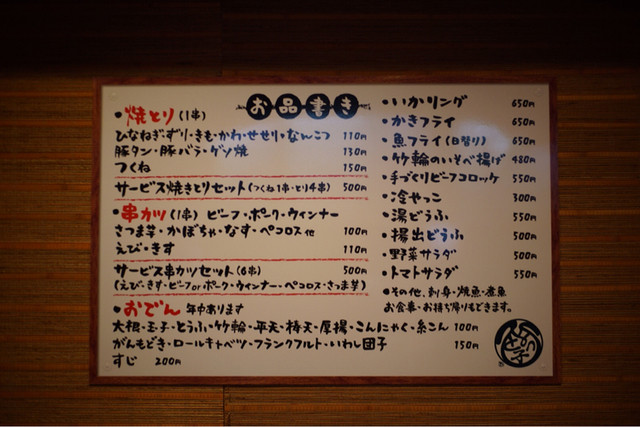 お品書き
・焼とり(1串)
ひなねぎ・ずり・きも・かわ・せせり・なんこつ 110円
豚タン・豚バラ・ゲソ焼 130円
つくね 150円
サービス焼きとりセット(つくね1串・とり4串) 500円
・串カツ(1串) ビーフ・ポーク・ウィンナー
さつま芋・かぼちゃ・なす・ペコロス他 100円
えび・きす 110円
サービス串カツセット(6串) 500円
(えび・きす・ビーフorポーク・ウィンナー・ペコロス・さつま芋)
・おでん 年中あります
大根・玉子・とうふ・竹輪・平天・棒天・厚揚・こんにゃく・糸こん 100円
がんもどき・ロールキャベツ・フランクフルト・いわし団子 150円
すじ 200円
・いかリング 650円
・かきフライ 650円
・魚フライ(日替り) 650円
・竹輪のいそべ揚げ 480円
・手づくりビーフコロッケ 550円
・冷やっこ 300円
・湯どうふ 550円
・揚出どうふ 500円
・野菜サラダ 500円
・トマトサラダ 550円
・その他、刺身・焼魚・煮魚
お食事・お持ち帰りもできます。